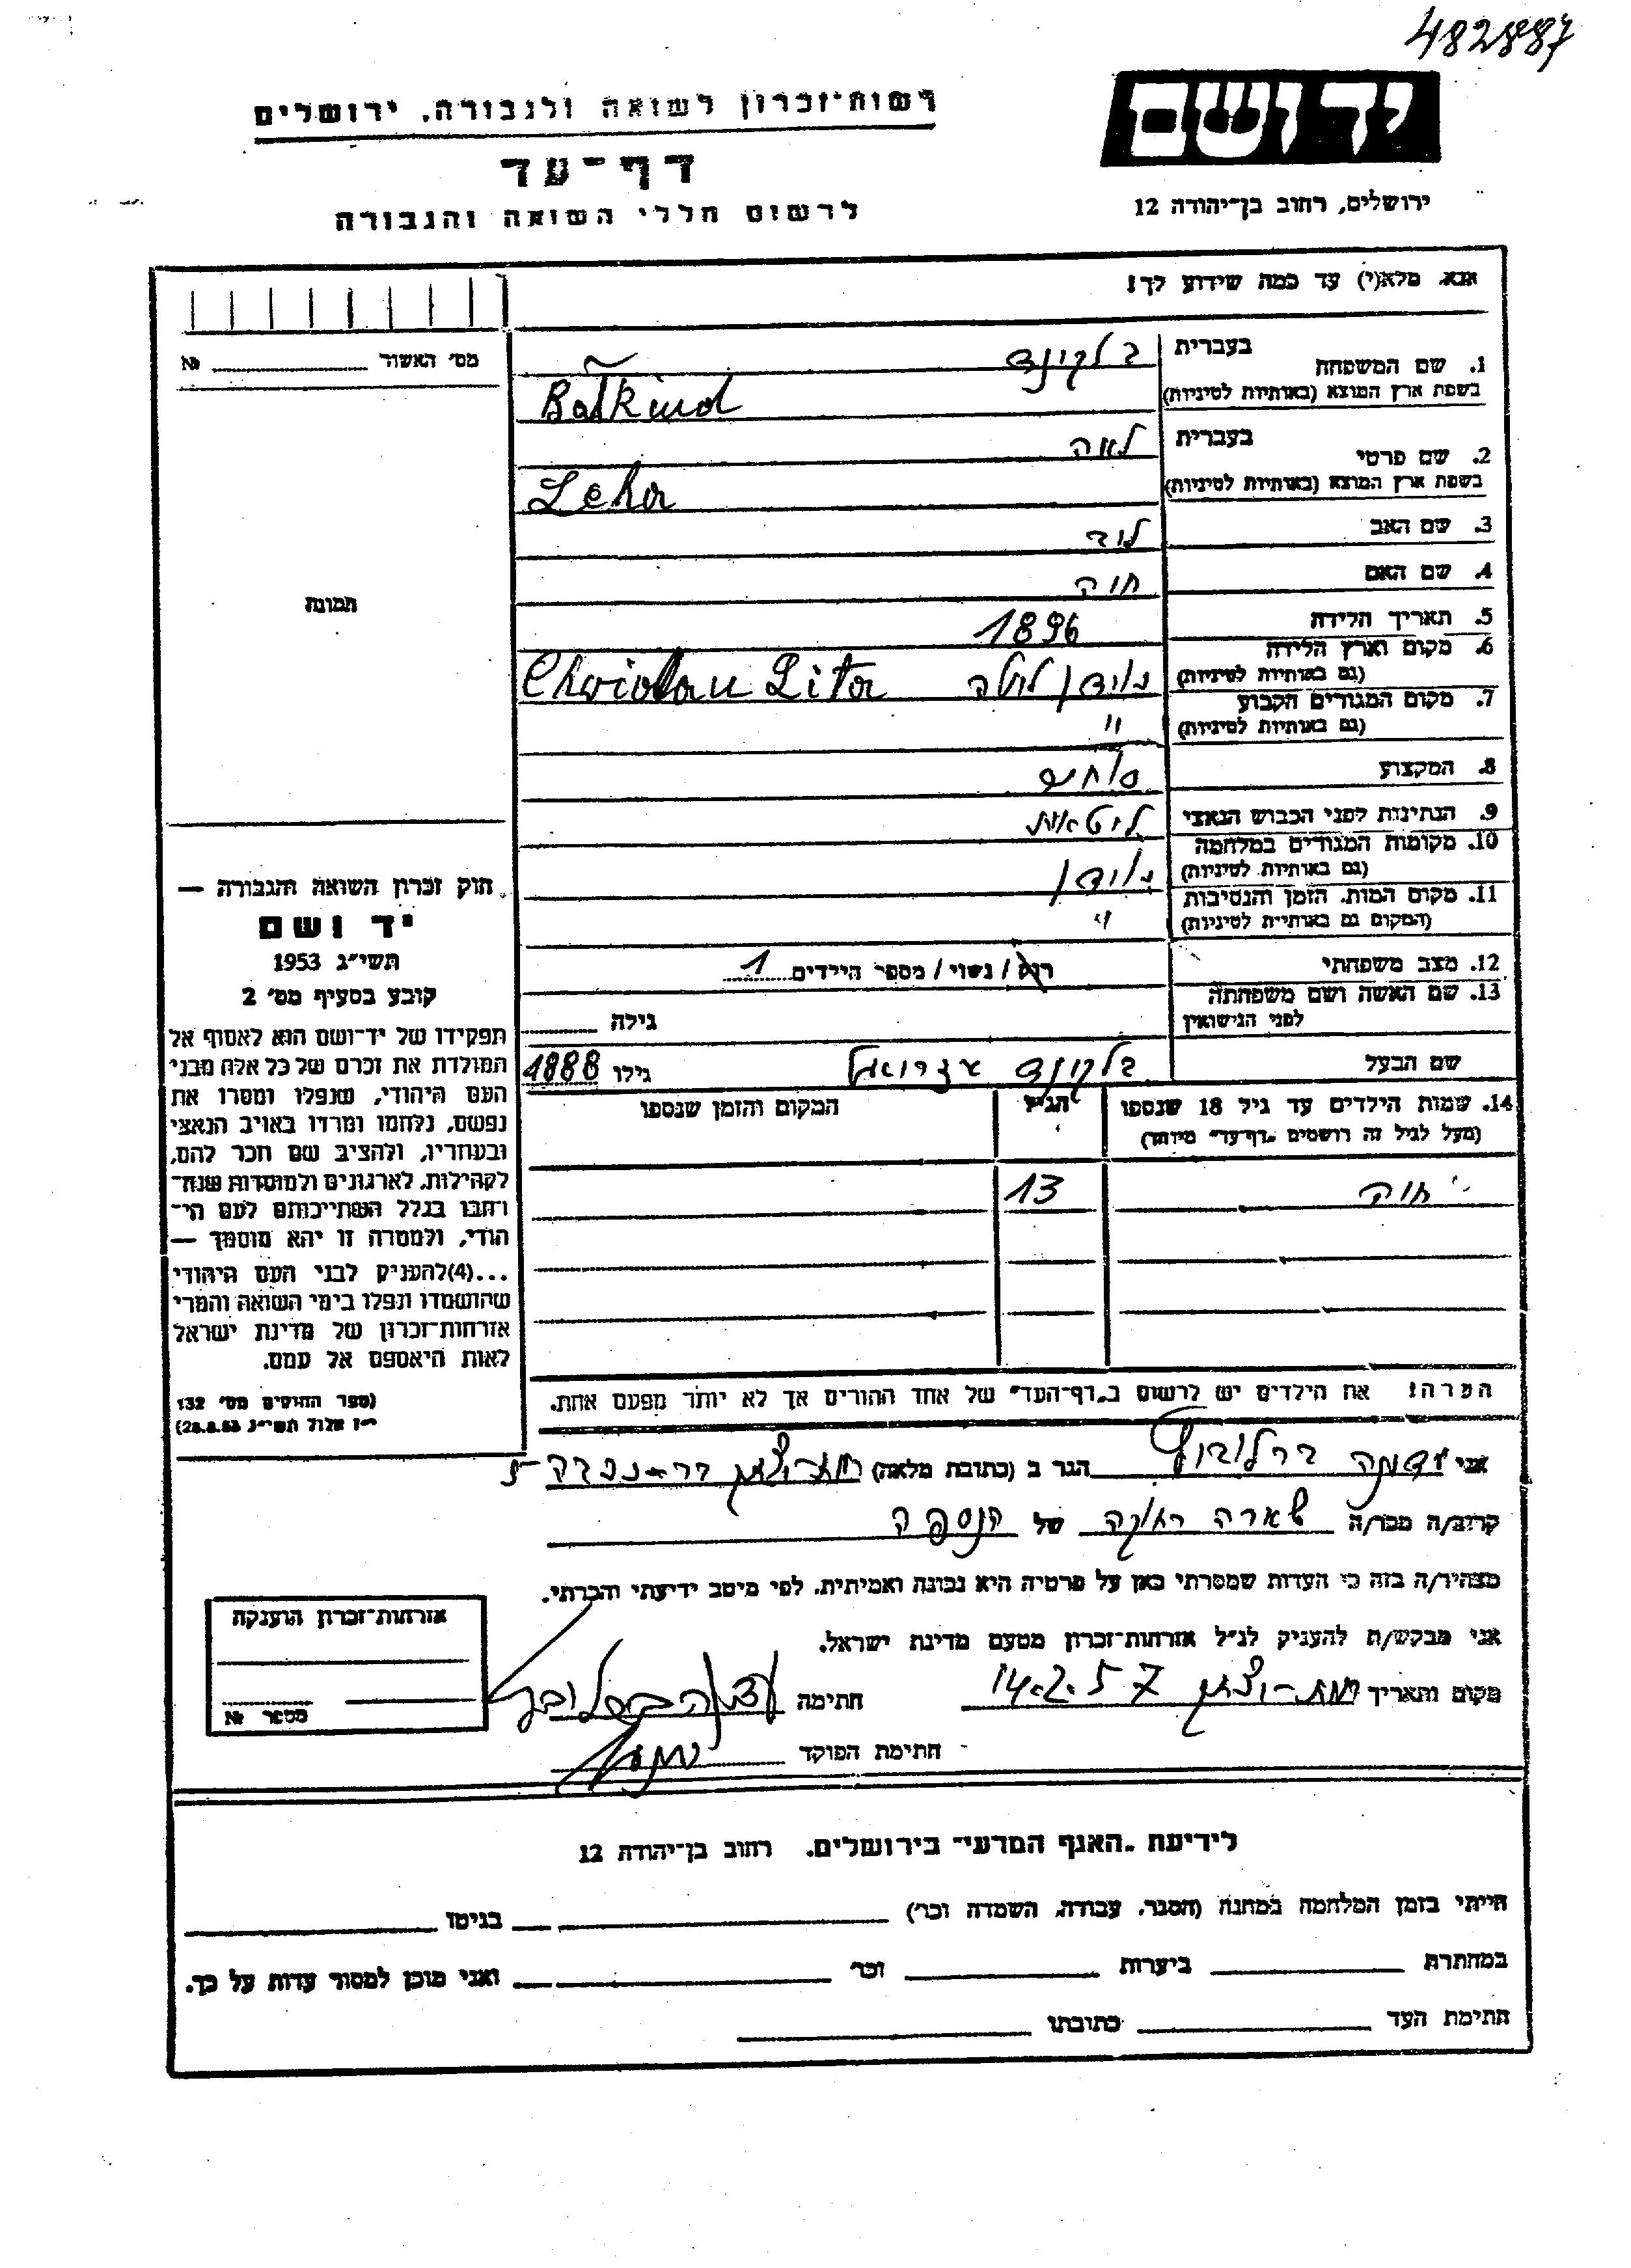 482887
יד ושם
ירושלים, רחוב בן־יהודה 12
רשות־זכרון לשואה ולגבורה, ירושלים
דף־עד
לרשום חללי השואה והגבורה
אנא, מלא(י) עד כמה שידוע לך!
מס׳ האשור № 
תמונה
1. שם המשפחה בעברית בלקינד
בשפת ארץ המוצא (באותיות לטיניות) Balkind
2. שם פרטי בעברית לאה
בשפת ארץ המוצא (באותיות לטיניות) Leha
3. שם האב
4. שם האם חוה
5. תאריך הלידה 1896
6. מקום וארץ הלידה
(גם באותיות לטיניות) ליטה Lita
7. מקום המגורים הקבוע
(גם באותיות לטיניות) "
8. המקצוע
9. הנתינות לפני הכבוש הנאצי ליטאית
10. מקומות המגורים במלחמה
(גם באותיות לטיניות)
11. מקום המות, הזמן והנסיבות
(המקום גם באותיות לטיניות) "
12. מצב משפחתי רווק / נשוי / מספר הילדים 1
13. שם האשה ושם משפחתה
לפני הנישואין גילה
שם הבעל בלקינד גילו 1888
14. שמות הילדים עד גיל 18 שנספו הגיל המקום והזמן שנספו
(מעל לגיל זה רושמים „דף־עד״ מיוחד)
חוה 13
הערה! את הילדים יש לרשום ב„דף־העד״ של אחד ההורים אך לא יותר מפעם אחת.
חוק זכרון השואה והגבורה —
יד ושם
תשי״ג 1953
קובע בסעיף מס׳ 2
תפקידו של יד־ושם הוא לאסוף אל
המולדת את זכרם של כל אלה מבני
העם היהודי, שנפלו ומסרו את
נפשם, נלחמו ומרדו באויב הנאצי
ובעוזריו, ולהציב שם וזכר להם,
לקהילות, לארגונים ולמוסדות שנח־
רבו בגלל השתייכותם לעם הי־
הודי, ולמטרה זו יהא מוסמך —
...(4)להעניק לבני העם היהודי
שהושמדו ונפלו בימי השואה והמרי
אזרחות־זכרון של מדינת ישראל
לאות היאספם אל עמם.
(ספר החוקים מס׳ 132
י״ז אלול תשי״ג 28.8.53)
אני הגר ב (כתובת מלאה)
קרוב/ה מכר/ה שארה רחוקה של הנספה
מצהיר/ה בזה כי העדות שמסרתי כאן על פרטיה היא נכונה ואמיתית, לפי מיטב ידיעתי והכרתי.
אני מבקש/ת להעניק לנ״ל אזרחות־זכרון מטעם מדינת ישראל.
מקום ותאריך 14.2.57 חתימה
חתימת הפוקד
אזרחות־זכרון הוענקה
מספר №
לידיעת „האגף המדעי״ בירושלים, רחוב בן־יהודה 12
הייתי בזמן המלחמה במחנה (הסגר, עבודה, השמדה וכו׳) בגיטו
במחתרת ביערות וכו׳ ואני מוכן למסור עדות על כך.
חתימת העד כתובתו